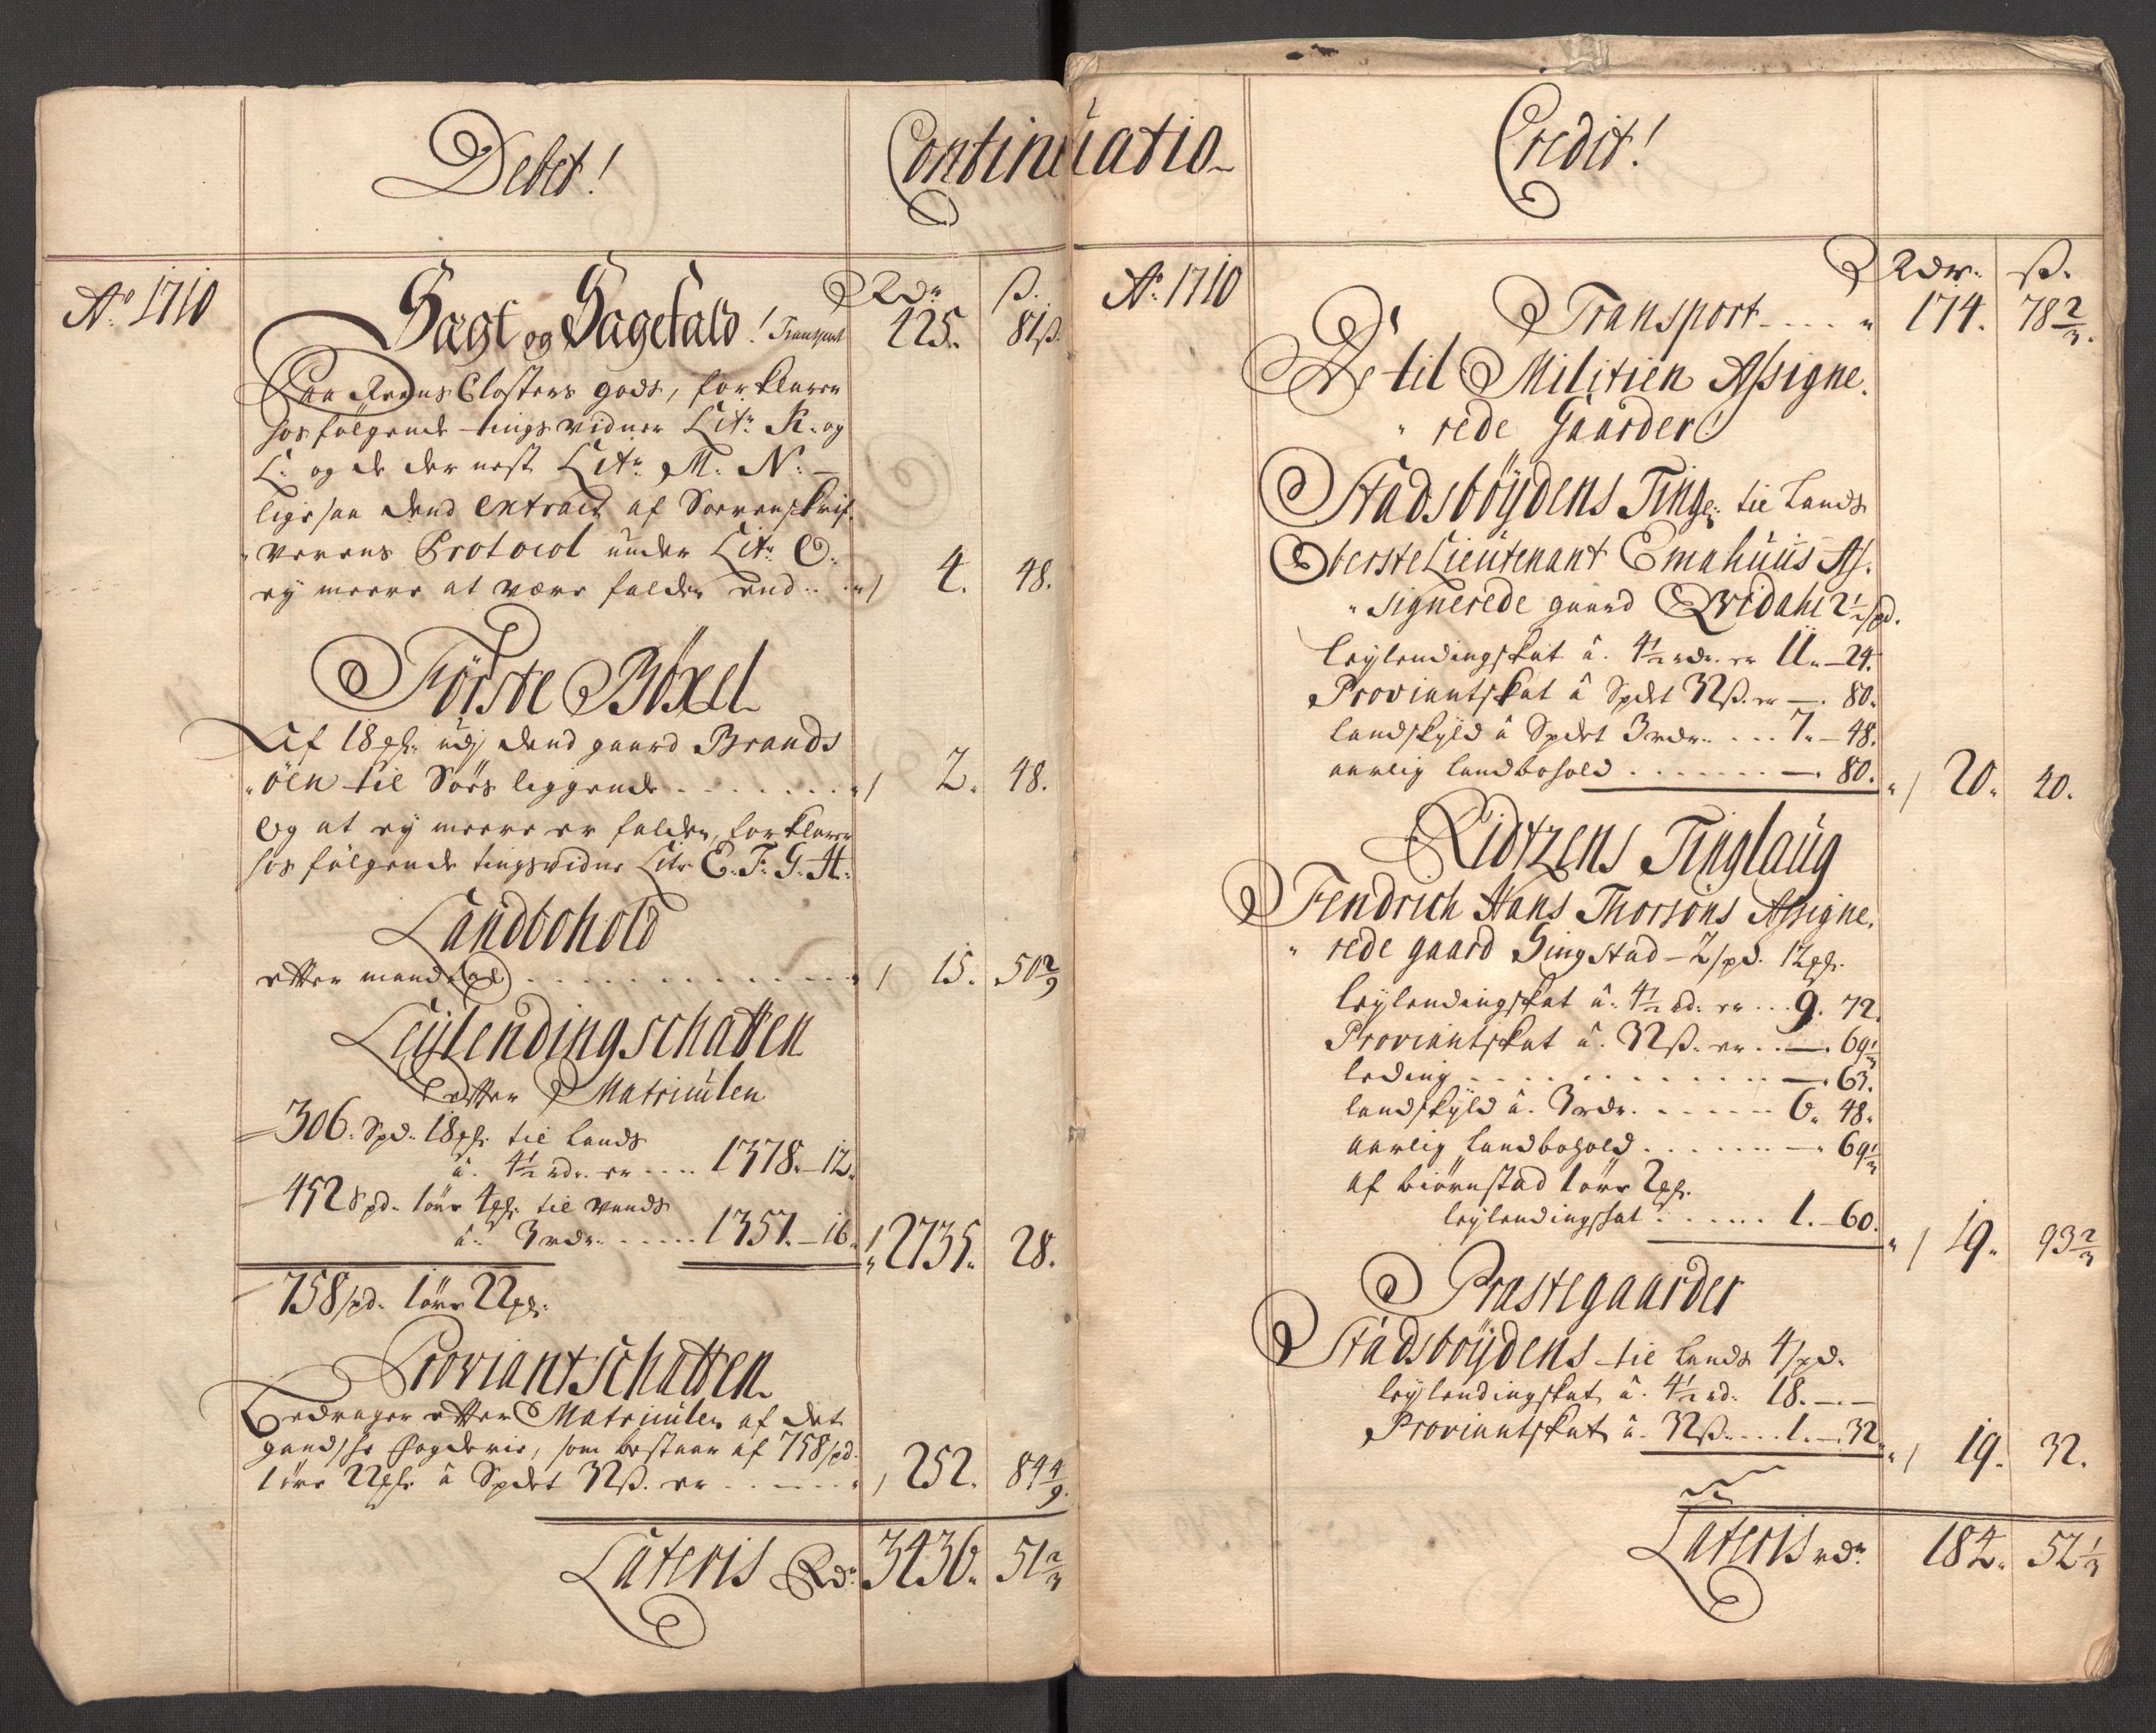 Debet!
Continuatio
Ao 1710
Rdr ß.
Sagt og Sagefald! Transport 425. 81ß.
Paa Reens Closters gods, forklarer
hos følgende tings vidner Litr K. og
L. og de der nest Litr M. N. —
ligesaa dend extract af Sorenskrif-
verens Protocol under Litr O.
ey meere at være falden end .. 4. 48.
Förste Böxel
Af 18 ghr udj dend gaard Brands
öen til Söes liggende ....... 2. 48.
Og at ey meere er falden, forklarer
hos følgende tingsvidne Litr E. F. G. H.
Landbohold
efter mandtal ............. 15. 50 2/9
Leylendingschatten
efter Matriculen
306. Spd. 18 ghr til Lands
â. 4½ rdr. er .... 1378.—12.
452 Spd. 1 öre 4 ghr til vands
â. 3 rdr. ..... 1357.—16. 2735. 28.
758 spd. 1 öre 22 ghr.
Proviantschatten
Bedrager efter Matriculen af det
gandsche fogderie, som bestaar af 758 spd.
1 öre 22 ghr â Spdet 32 ß. er ...... 252. 84 4/9
Lateris Rdr 3436. 51 2/3
Credit!
Ao 1710
Rdr. ß.
Transport .... 174. 78 2/3.
De til Militien Assigne-
rede Gaarder!
Stadsböydens Tinge: til Lands
Oberste Lieutenant Emahuus As-
signerede gaard Qvidahl 2½ spd.
Leylendingskat â. 4½ rdr. er 11.—24.
Proviantskat â Spdet 32 ß. er —. 80.
landskyld â Spdet 3 rdr. ... 7.—48.
aarlig landbohold ....... —. 80. 20. 40.
Ridtzens Tinglaug
Fendrich Hans Thorsöns Assigne-
rede gaard Singstad — 2 spd. 12 ghr.
leylendingskat â. 4½ rd. er ... 9. 72.
Proviantskat â. 32 ß. er .. —. 69 1/3
leding ............. —. 63.
landskyld â. 3 rdr. ...... 6. 48.
aarlig landbohold ...... —. 69 1/3
af biörnstad 1 öre 2 ghr.
leylendingskat ...... 1.—60. 19. 93 2/3
Præstegaarder
Stadsböydens til Lands 4 spd.
leylendingskat â. 4½ rd. 18.—.—
Proviantskat â. 32 ß. ... 1.—32. 19. 32.
Lateris rdr 184. 52 1/3